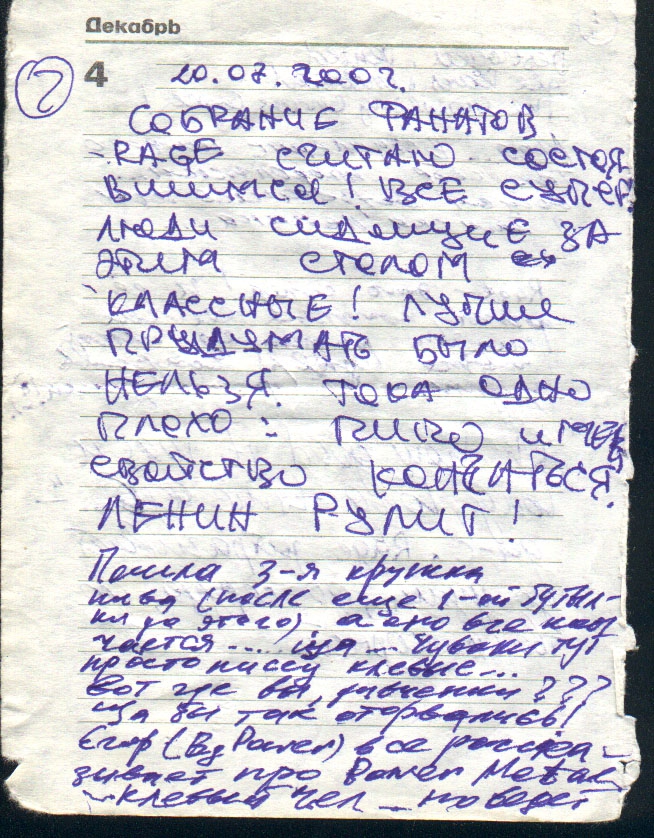 Декабрь
2
4 20.07.2002.
СОБРАНИЕ ФАНАТОВ
RAGE СЧИТАЮ СОСТОЯ
ВШИМСЯ! ВСЕ СУПЕР.
ЛЮДИ СИДЯЩИЕ ЗА
ЭТИМ СТОЛОМ
КЛАССНЫЕ! ЛУЧШЕ
ПРИДУМАТЬ БЫЛО
НЕЛЬЗЯ. ТОКА ОДНО
ПЛОХО: ПИВО ИМЕЕТ
СВОЙСТВО КОНЧИТЬСЯ.
ЛЕНИН РУЛИТ!
Пошла 3-я кружка
пива (после еще 1-ой бутыл-
ки до этого) а оно все кон
чается... ща... Чуваки тут
просто писсу клевые...
Вот где вы, девчонки???
Ща бы так оторвались!
Егор (By Power) все расска-
зывает про Power Metal
клевый чел _ но ведёт